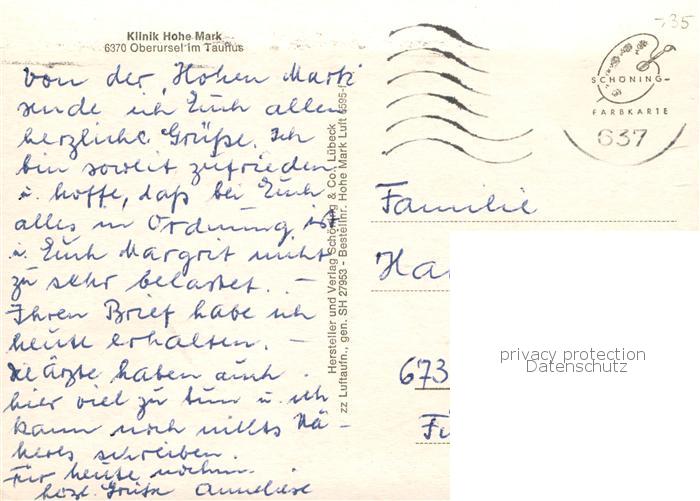 Klinik Hohe Mark
6370 Oberursel im Taunus
von der "Hohen Mark"
sende ich Euch allen
herzliche Grüße. Ich
bin soweit zufrieden
u. hoffe, daß bei Euch
alles in Ordnung ist
u. Euch Margrit nicht
zu sehr belastet. –
Ihren Brief habe ich
heute erhalten. –
Die Ärzte haben auch
hier viel zu tun u. ich
kann noch nichts Nä-
heres schreiben.
Für heute nochm.
herzl. Grüße Anneliese
Hersteller und Verlag Schöning & Co., Lübeck
zz Luftaufn., gen. SH 27953 - Bestellnr. Hohe Mark Luft
SCHÖNING-
FARBKARTE
637
Familie
Ha
673
privacy protection
Datenschutz